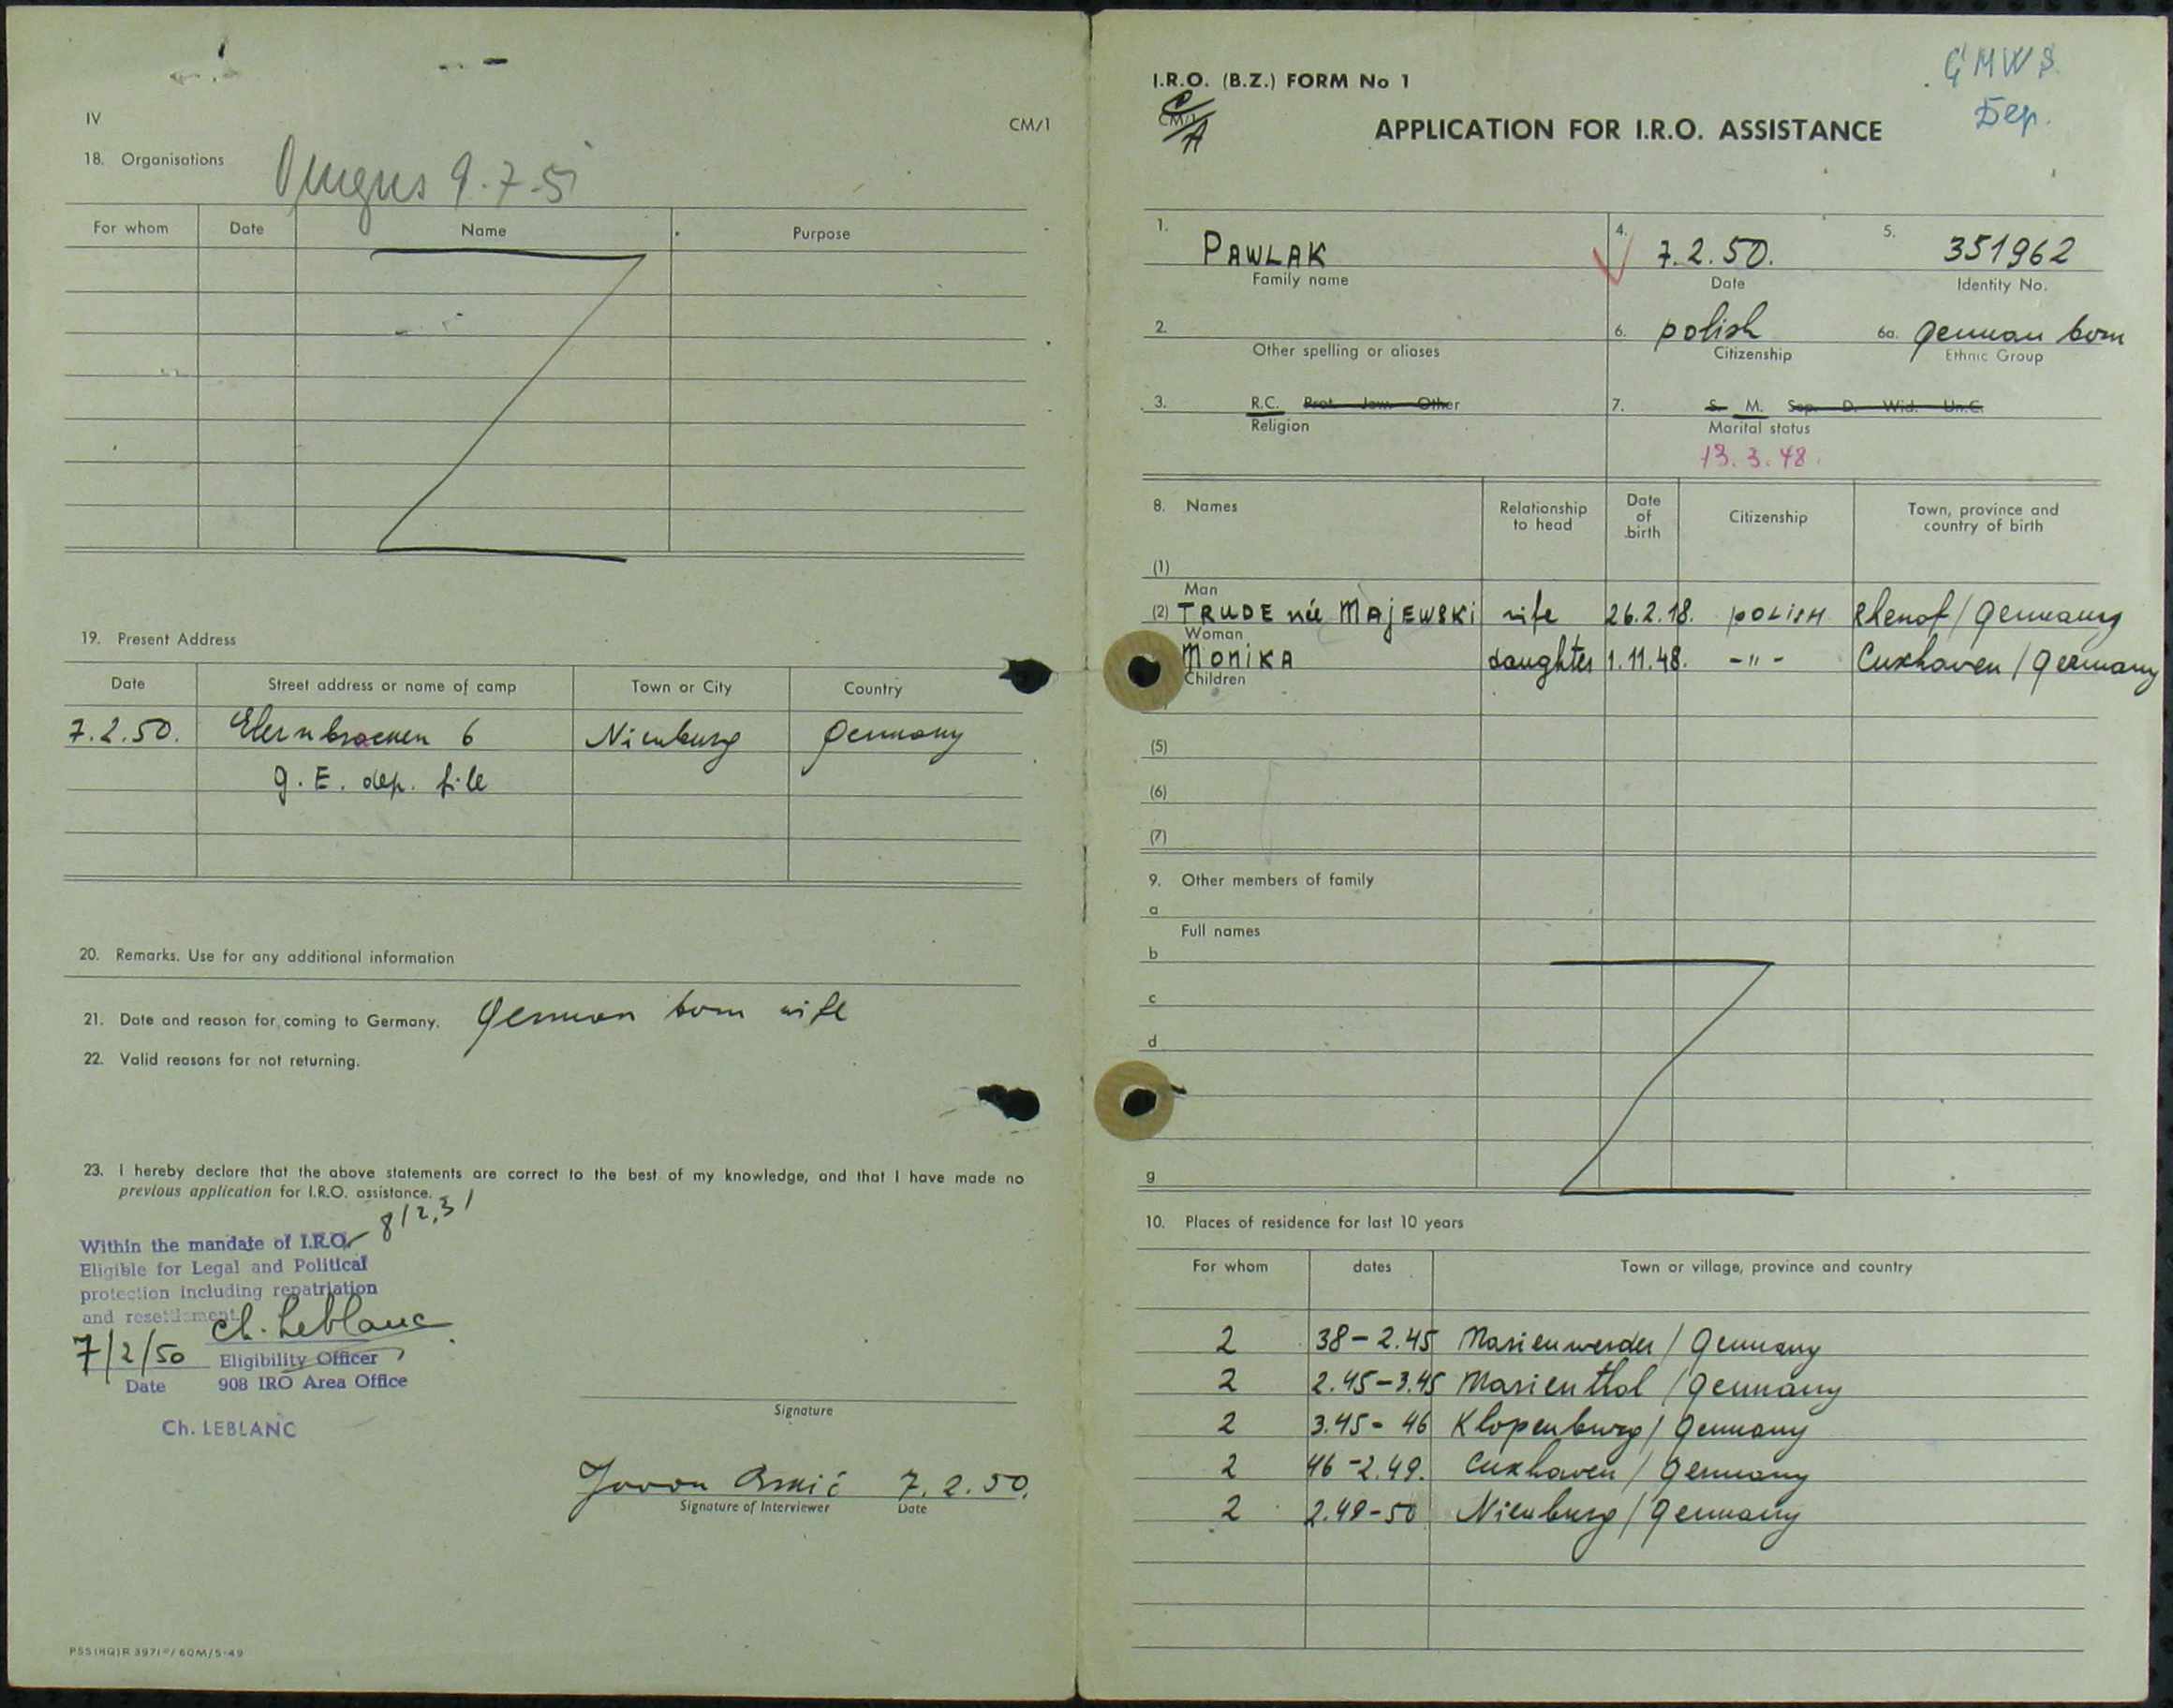 IV
CM/1
18. Organisations
9.7.51
For whom Date Name Purpose
19. Present Address
Date Street address or name of camp Town or City Country
7.2.50. 6 Nienburg Germany
g. E. dep. file
20. Remarks. Use for any additional information
21. Date and reason for coming to Germany. German born wife
22. Valid reasons for not returning.
23. I hereby declare that the above statements are correct to the best of my knowledge, and that I have made no
previous application for I.R.O. assistance.
Within the mandate of I.R.O.
Eligible for Legal and Political
protection including repatriation
and resettlement
Ch. Leblanc
7/2/50 Eligibility Officer
Date 908 IRO Area Office
Ch. LEBLANC
Signature
Jovan 7.2.50.
Signature of Interviewer Date
I.R.O. (B.Z.) FORM No 1
GMWS
Бер.
CM/1
C/A
APPLICATION FOR I.R.O. ASSISTANCE
1. PAWLAK
Family name
4. 7.2.50.
Date
5. 351962
Identity No.
2.
Other spelling or aliases
6. polish
Citizenship
6a. german born
Ethnic Group
3. R.C. Prot. Jew. Other
Religion
7. S. M. Sep. D. Wid. Un.C.
Marital status
13.3.48.
8. Names Relationship to head Date of birth Citizenship Town, province and country of birth
(1)
Man
(2) TRUDE née MAJEWSKI wife 26.2.18. POLISH Germany
Woman
MONIKA daughter 1.11.48. -"- Cuxhaven / Germany
Children
(5)
(6)
(7)
9. Other members of family
a
Full names
b
c
d
g
10. Places of residence for last 10 years
For whom dates Town or village, province and country
2 38-2.45 Marienwerder / Germany
2 2.45-3.45 Marienthal / Germany
2 3.45-46 Klopenburg / Germany
2 46-2.49. Cuxhaven / Germany
2 2.49-50 Nienburg / Germany